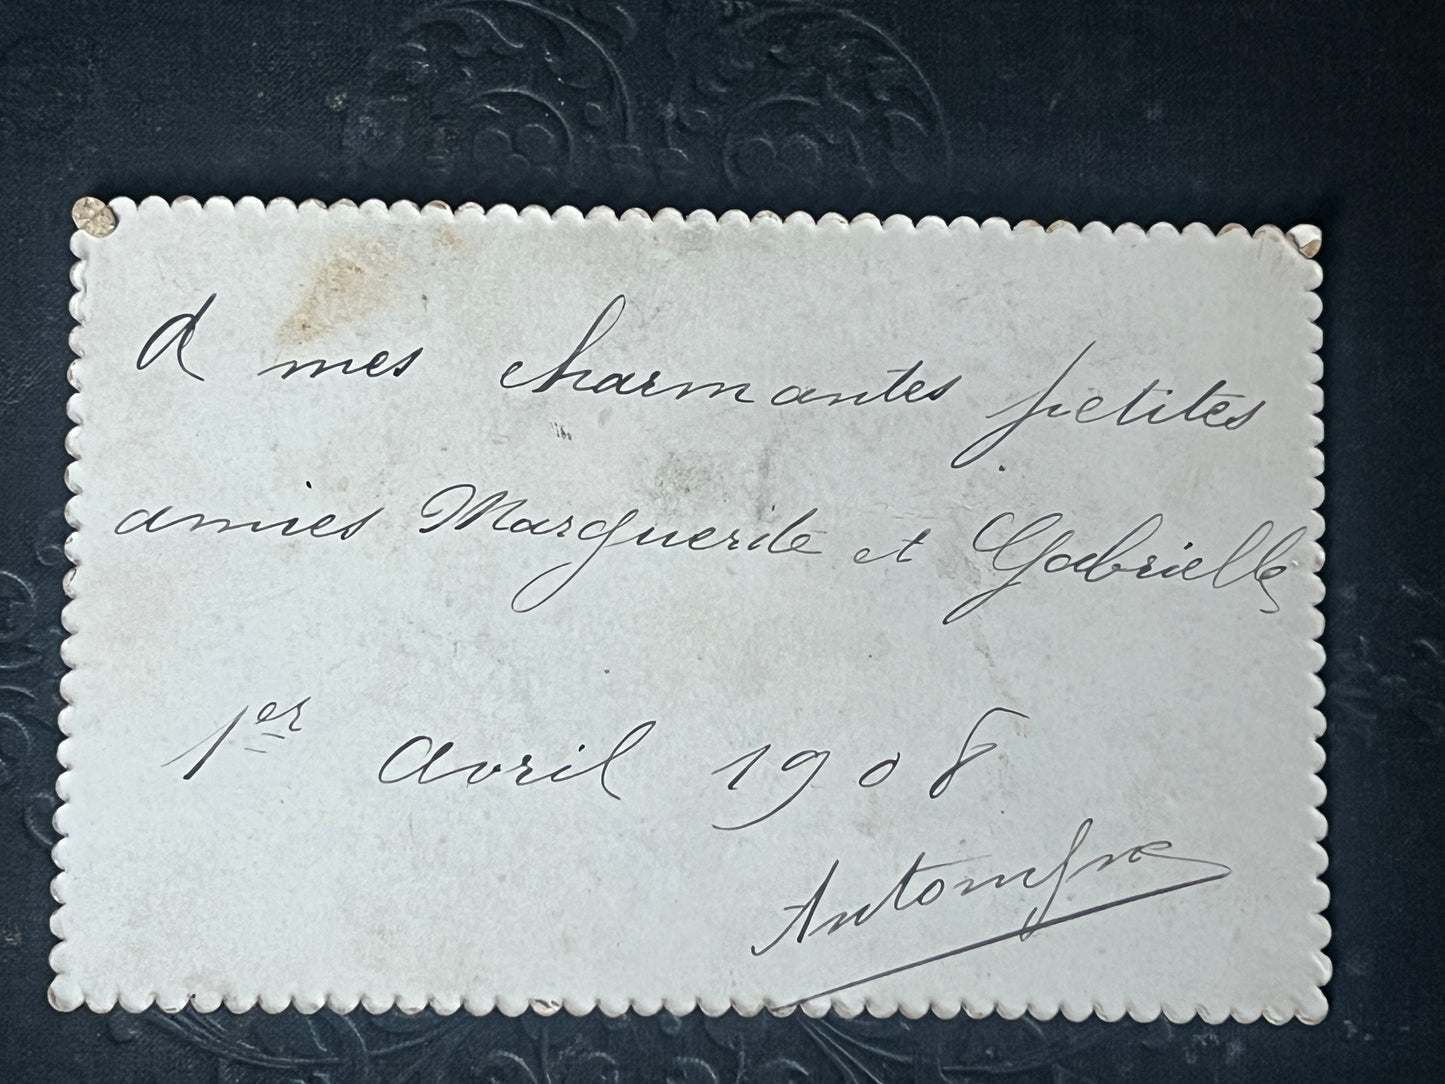 A mes charmantes petites
amies Marguerite et Gabrielle
1er avril 1908